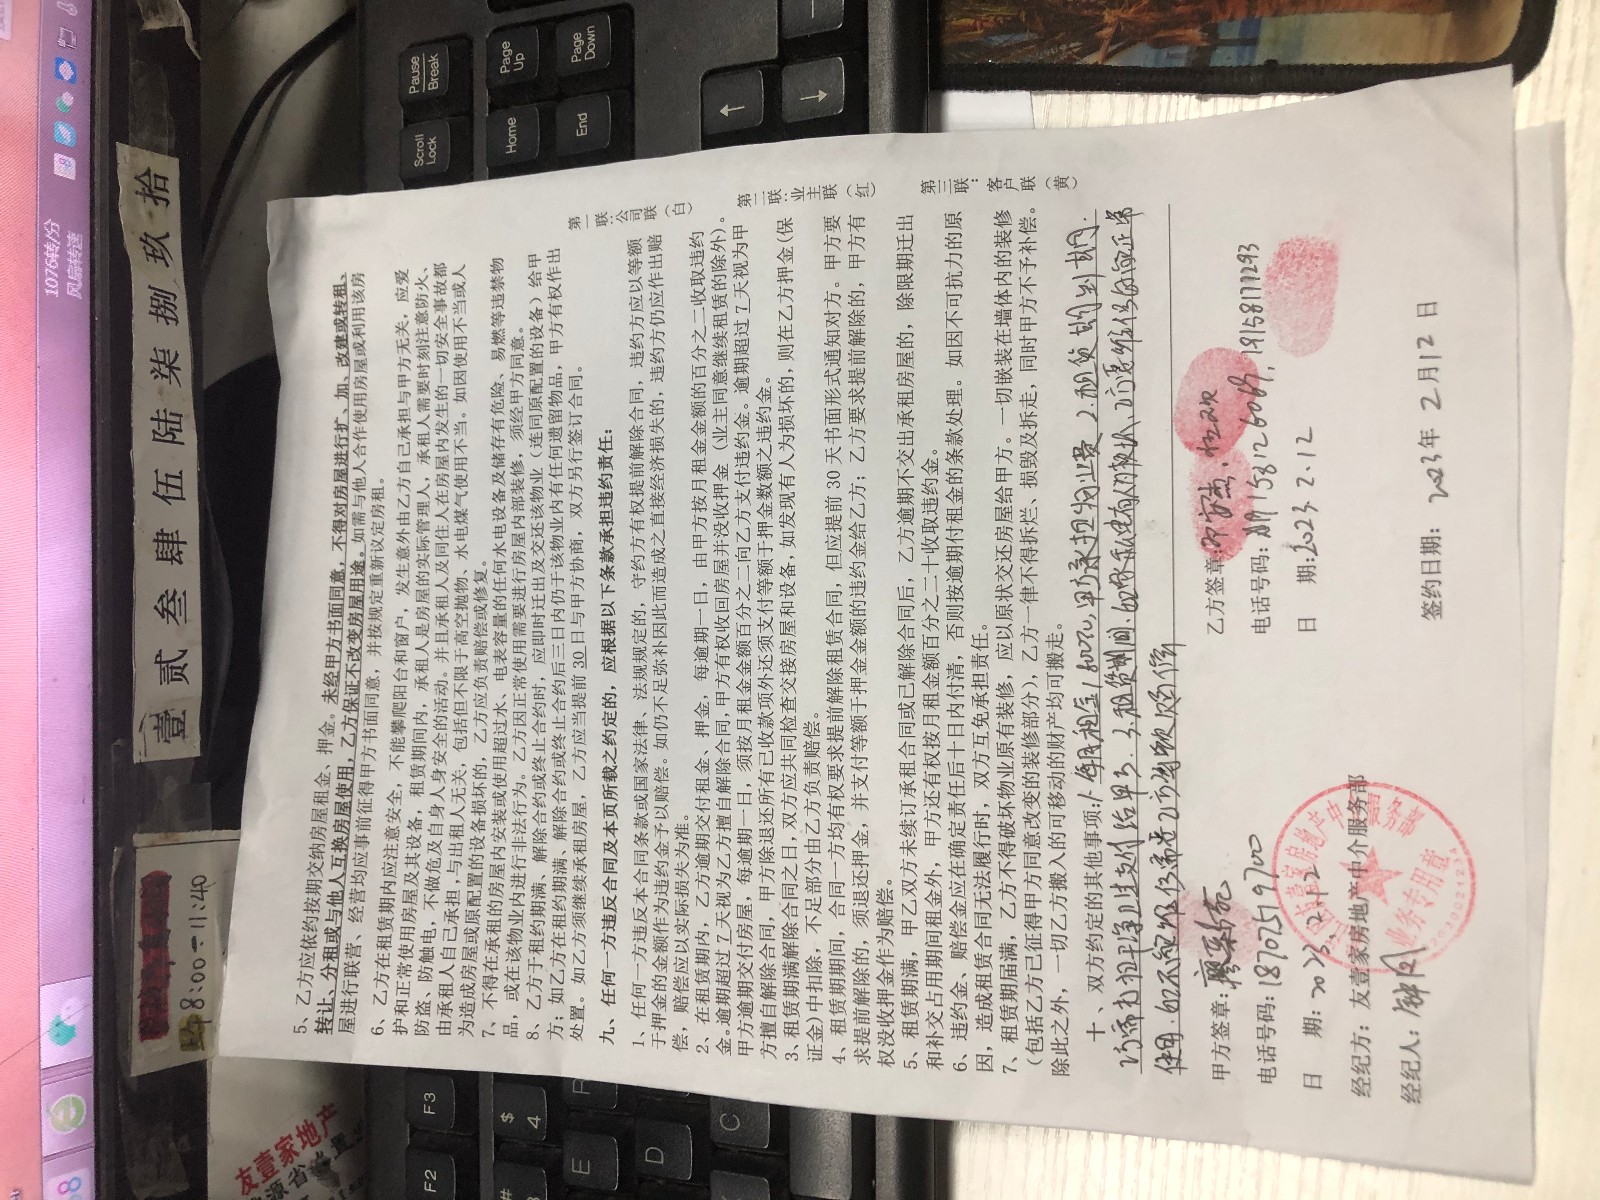 5、乙方应依约按期交纳房屋租金、押金。未经甲方书面同意，不得对房屋进行扩、加、改建或转租、
转让、分租或与他人互换房屋使用，乙方保证不改变房屋用途。如需与他人合作使用房屋或利用该房
屋进行联营、经营均应事前征得甲方书面同意，并按规定重新议定房租。
6、乙方在租赁期内应注意安全，不能攀爬阳台和窗户，发生意外由乙方自己承担与甲方无关，应爱
护和正常使用房屋及其设备，租赁期间内，承租人是房屋的实际管理人，承租人需要时刻注意防火、
防盗、防触电，不做危及自身人身安全的活动。并且承租人及同住人在房屋内发生的一切安全事故都
由承租人自己承担，与出租人无关，包括但不限于高空抛物、水电煤气使用不当。如因使用不当或人
为造成房屋或原配置的设备损坏的，乙方应负责赔偿或修复。
7、不得在承租的房屋内安装或使用超过水、电表容量的任何水电设备及储存有危险、易燃等违禁物
品，或在该物业内进行非法行为。乙方因正常使用需要进行房屋内部装修，须经甲方同意。
8、乙方于租约期满、解除合约或终止合约时，应即时迁出及交还该物业（连同原配置的设备）给甲
方；如乙方在租约期满、解除合约或终止合约后三日内仍于该物业内有任何遗留物品，甲方有权作出
处置。如乙方须继续承租房屋，乙方应当提前 30 日与甲方协商，双方另行签订合同。
九、任何一方违反合同及本页所载之约定的，应根据以下条款承担违约责任：
1、任何一方违反本合同条款或国家法律、法规规定的，守约方有权提前解除合同，违约方应以等额
于押金的金额作为违约金予以赔偿。如仍不足弥补因此而造成之直接经济损失的，违约方仍应作出赔
偿，赔偿应以实际损失为准。
2、在租赁期内，乙方逾期交付租金、押金，每逾期一日，由甲方按月租金金额的百分之二收取违约
金。逾期超过 7 天视为乙方擅自解除合同，甲方有权收回房屋并没收押金（业主同意继续租赁的除外）。
甲方逾期交付房屋，每逾期一日，须按月租金金额百分之二向乙方支付违约金。逾期超过 7 天视为甲
方擅自解除合同，甲方除退还所有已收款项外还须支付等额于押金数额之违约金。
3、租赁期满解除合同之日，双方应共同检查交接房屋和设备，如发现有人为损坏的，则在乙方押金（保
证金）中扣除，不足部分由乙方负责赔偿。
4、租赁期期间，合同一方均有权要求提前解除租赁合同，但应提前 30 天书面形式通知对方。甲方要
求提前解除的，须退还押金，并支付等额于押金金额的违约金给乙方；乙方要求提前解除的，甲方有
权没收押金作为赔偿。
5、租赁期满，甲乙双方未续订承租合同或已解除合同后，乙方逾期不交出承租房屋的，除限期迁出
和补交占用期间租金外，甲方还有权按月租金额百分之二十收取违约金。
6、违约金、赔偿金应在确定责任后十日内付清，否则按逾期付租金的条款处理。如因不可抗力的原
因，造成租赁合同无法履行时，双方互免承担责任。
7、租赁期届满，乙方不得破坏物业原有装修，应以原状交还房屋给甲方。一切嵌装在墙体内的装修
（包括乙方已征得甲方同意改变的装修部分），乙方一律不得拆烂、损毁及拆走，同时甲方不予补偿。
除此之外，一切乙方搬入的可移动的财产均可搬走。
第一联：公司联（白）
第二联：业主联（红）
第三联：客户联（黄）
十、双方约定的其他事项：1.每月租金1600元，甲方承担物业费 2.租赁期到期
乙需打扫干净卫生交付给甲方. 3.租赁期间.
使用.
甲方签章：
电话号码：18702519700
日 期：2023.2.12
经纪方：友壹家房地产中介服务部
经纪人：
乙方签章：
电话号码：
日 期：2023.2.12
签约日期： 2023年 2月12日
业务专用章
壹 贰 叁 肆 伍 陆 柒 捌 玖 拾
8:00-11:40
友壹家房地产
1076转/分
风扇转速
Pause
Break
Page
Up
Page
Down
Scroll
Lock
Home
End
F2
F3
$
4
#
E
D
C